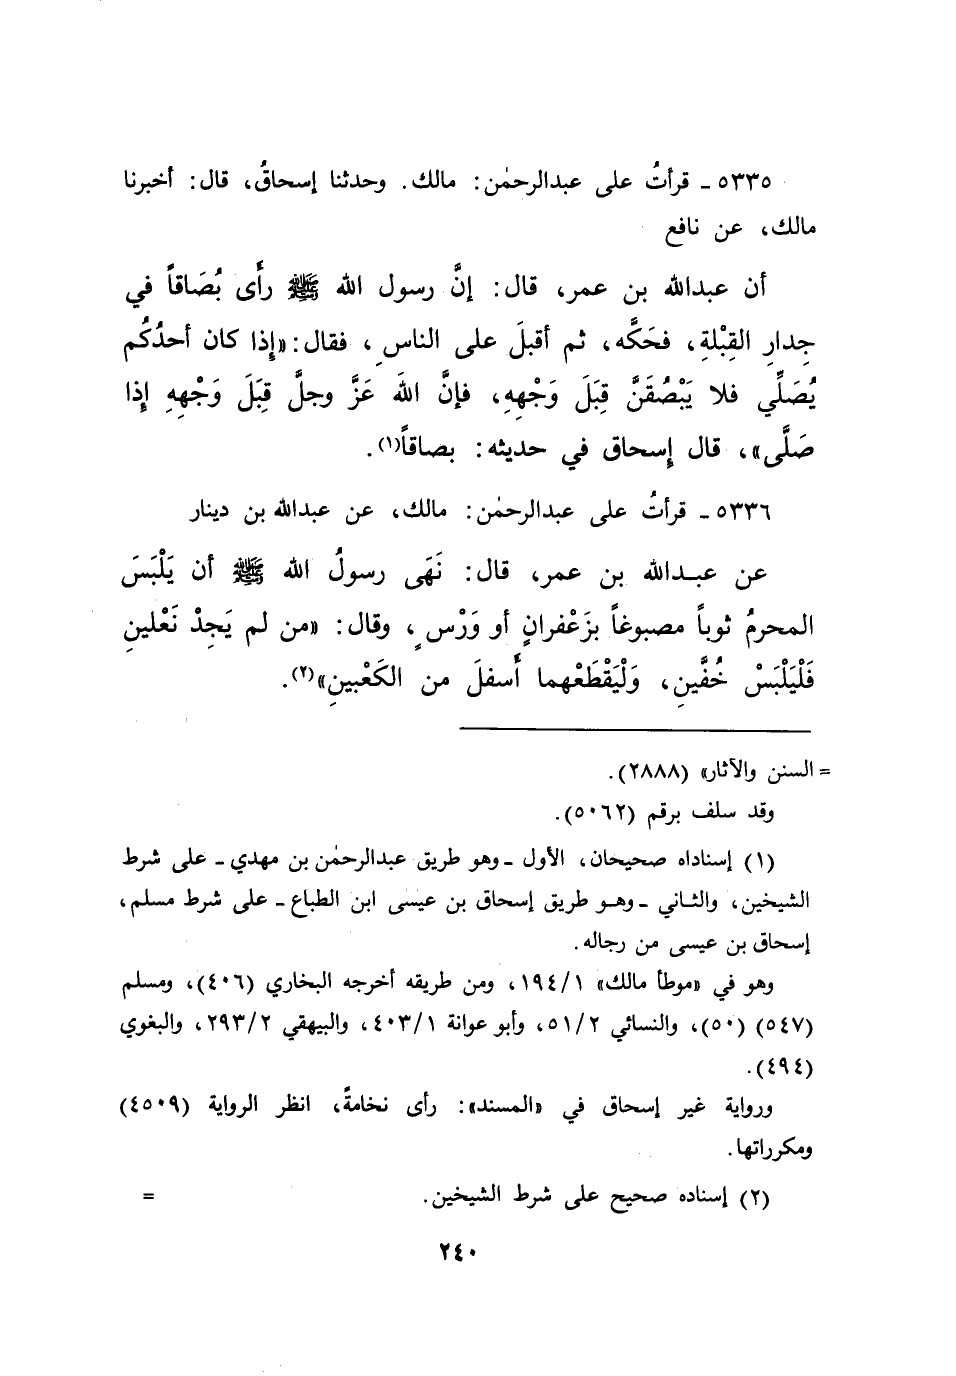 ٥٣٣٥ ـ قرأتُ على عبدالرحمٰن: مالك. وحدثنا إسحاقُ، قال: أخبرنا
مالك، عن نافع
أن عبدالله بن عمر، قال: إنَّ رسول الله ﷺ رأَى بُصَاقاً في
جِدارِ القِبْلةِ، فحَكَّه، ثم أقبلَ على الناسِ، فقال: «إِذا كان أحدُكُم
يُصَلِّي فلا يَبْصُقَنَّ قِبَلَ وَجْهِهِ، فإنَّ اللهَ عَزَّ وجلَّ قِبَلَ وَجْهِهِ إِذا
صَلَّى»، قال إسحاق في حديثه: بصاقاً(١).
٥٣٣٦ ـ قرأتُ على عبدالرحمٰن: مالك، عن عبدالله بن دينار
عن عبدالله بن عمر، قال: نَهَى رسولُ الله ﷺ أن يَلْبَسَ
المحرمُ ثوباً مصبوغاً بزَعْفرانٍ أو وَرْسٍ، وقال: «من لم يَجِدْ نَعْلينِ
فَلْيَلْبَسْ خُفَّينِ، وَلْيَقْطَعْهما أَسفلَ من الكَعْبينِ»(٢).
= السنن والآثار» (٢٨٨٨).
وقد سلف برقم (٥٠٦٢).
(١) إسناداه صحيحان، الأول ـ وهو طريق عبدالرحمٰن بن مهدي ـ على شرط
الشيخين، والثاني ـ وهو طريق إسحاق بن عيسى ابن الطباع ـ على شرط مسلم،
إسحاق بن عيسى من رجاله.
وهو في «موطأ مالك» ١٩٤/١، ومن طريقه أخرجه البخاري (٤٠٦)، ومسلم
(٥٤٧) (٥٠)، والنسائي ٥١/٢، وأبو عوانة ٤٠٣/١، والبيهقي ٢٩٣/٢، والبغوي
(٤٩٤).
ورواية غير إسحاق في «المسند»: رأى نخامةً، انظر الرواية (٤٥٠٩)
ومكرراتها.
(٢) إسناده صحيح على شرط الشيخين. =
٢٤٠